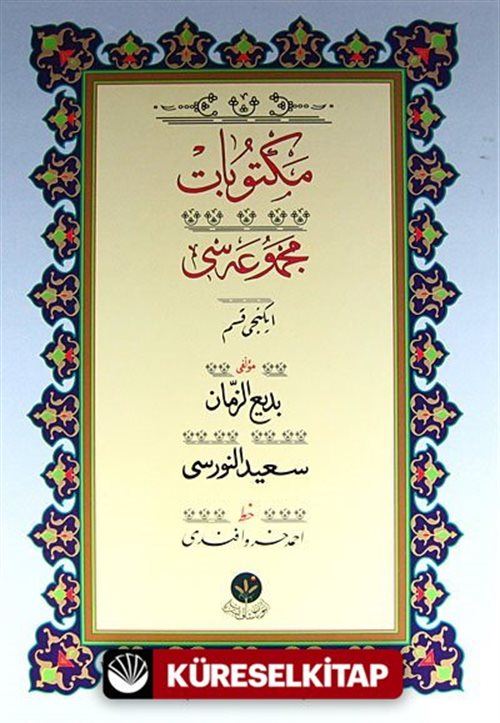 مَكْتُوبَاتْ
مَجْمُوعَه سِى
ايكنجى قسم
مؤلفى
بديع الزمّان
سعيد النورسى
خط
احمد خسرو افندى
KÜRESELKİTAP